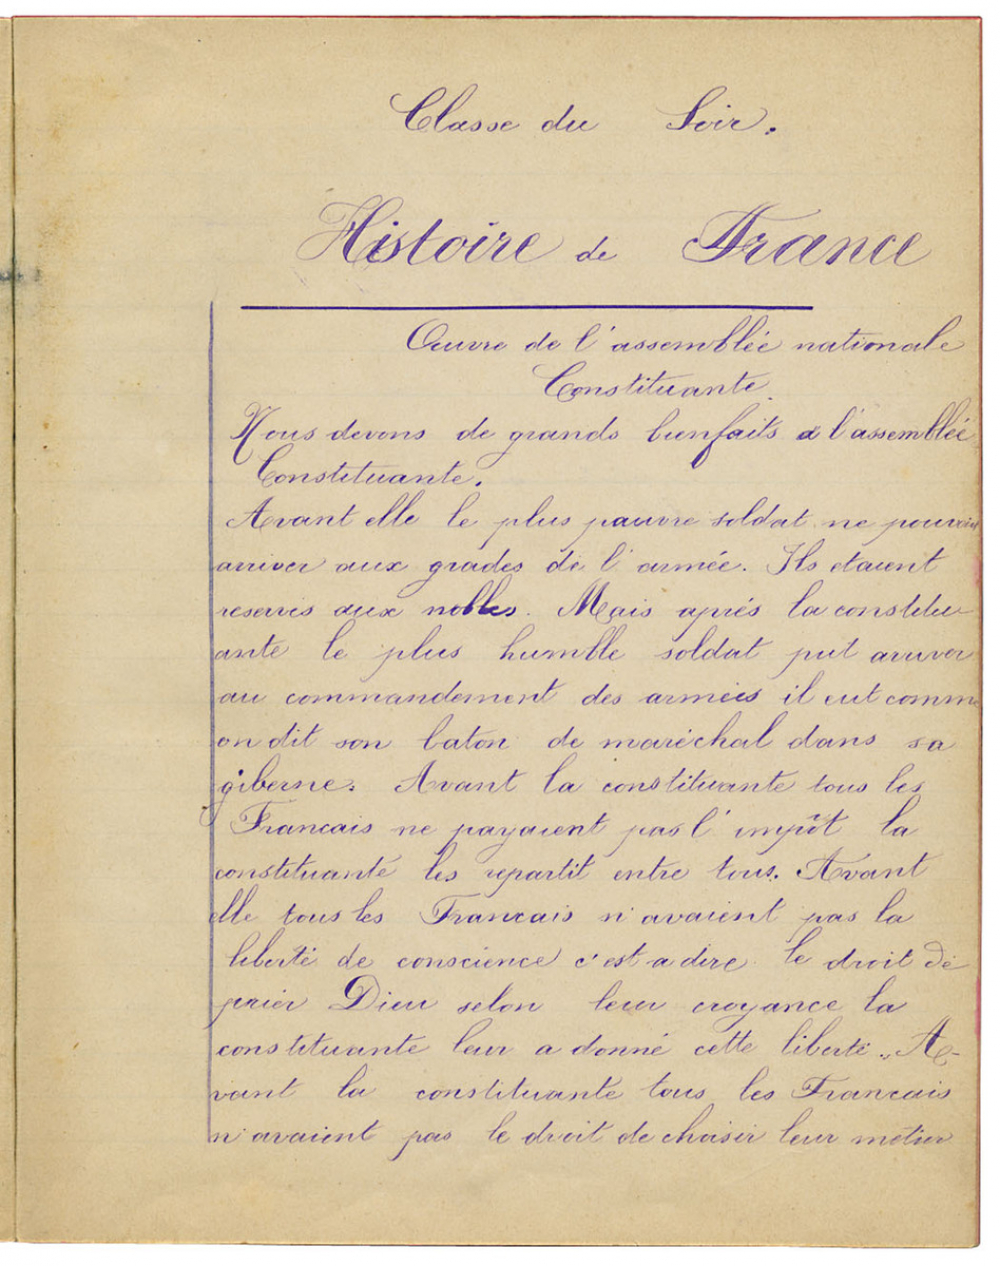 Classe du Soir.
Histoire de France
Œuvre de l'assemblée nationale
Constituante.
Nous devons de grands bienfaits a l'assemblée
Constituante.
Avant elle le plus pauvre soldat ne pouvait
arriver aux grades de l'armée. Ils etaient
reservés aux nobles. Mais aprés la constitu-
ante le plus humble soldat put arriver
au commandement des armées il eut comme
on dit son baton de maréchal dans sa
giberne. Avant la constituante tous les
Francais ne payaient pas l'impôt la
constituante les repartit entre tous. Avant
elle tous les Francais n'avaient pas la
liberté de conscience c'est a dire le droit de
prier Dieu selon leur croyance la
constituante leur a donné cette liberté. A-
vant la constituante tous les Francais
n'avaient pas le droit de choisir leur métier